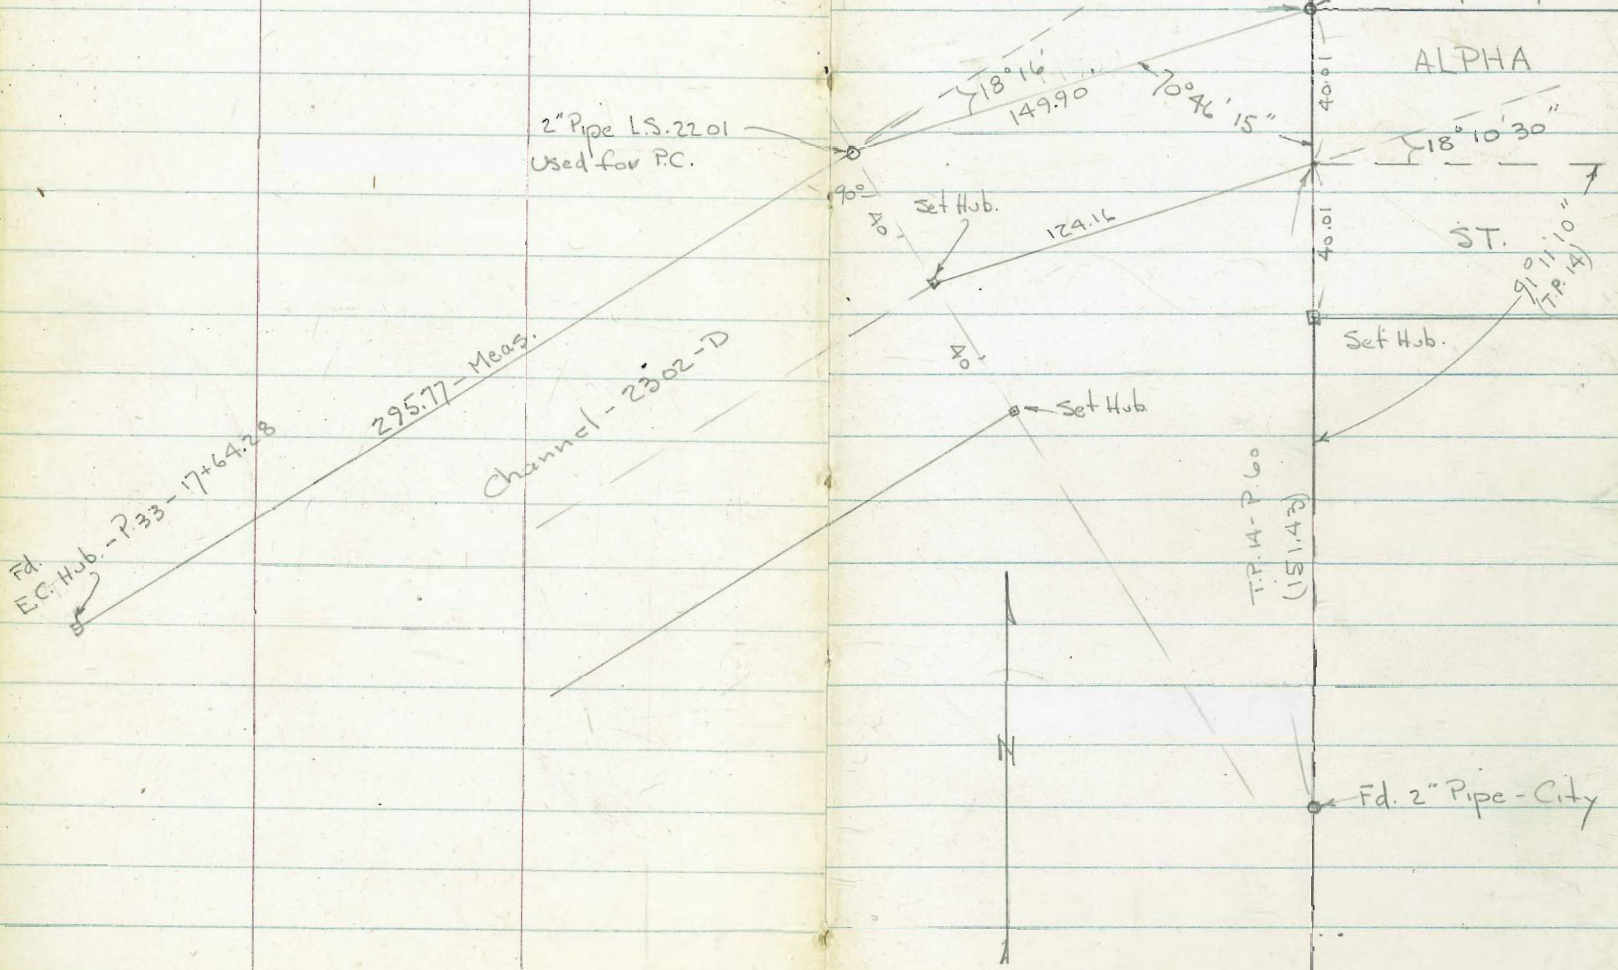 ALPHA
40.01
18°16'
149.90
70°46'15"
18°10'30"
2" Pipe L.S. 2201
Used for P.C.
90°
40
Set Hub.
124.16
40.01
ST.
91°11'10"
(T.P. 14)
Set Hub.
40
Set Hub.
295.77 - Meas.
Channel - 2302-D
Fd.
E.C. Hub. - P.33 - 17+64.28
T.P. 14 - P. 60
(151.43)
N
Fd. 2" Pipe - City